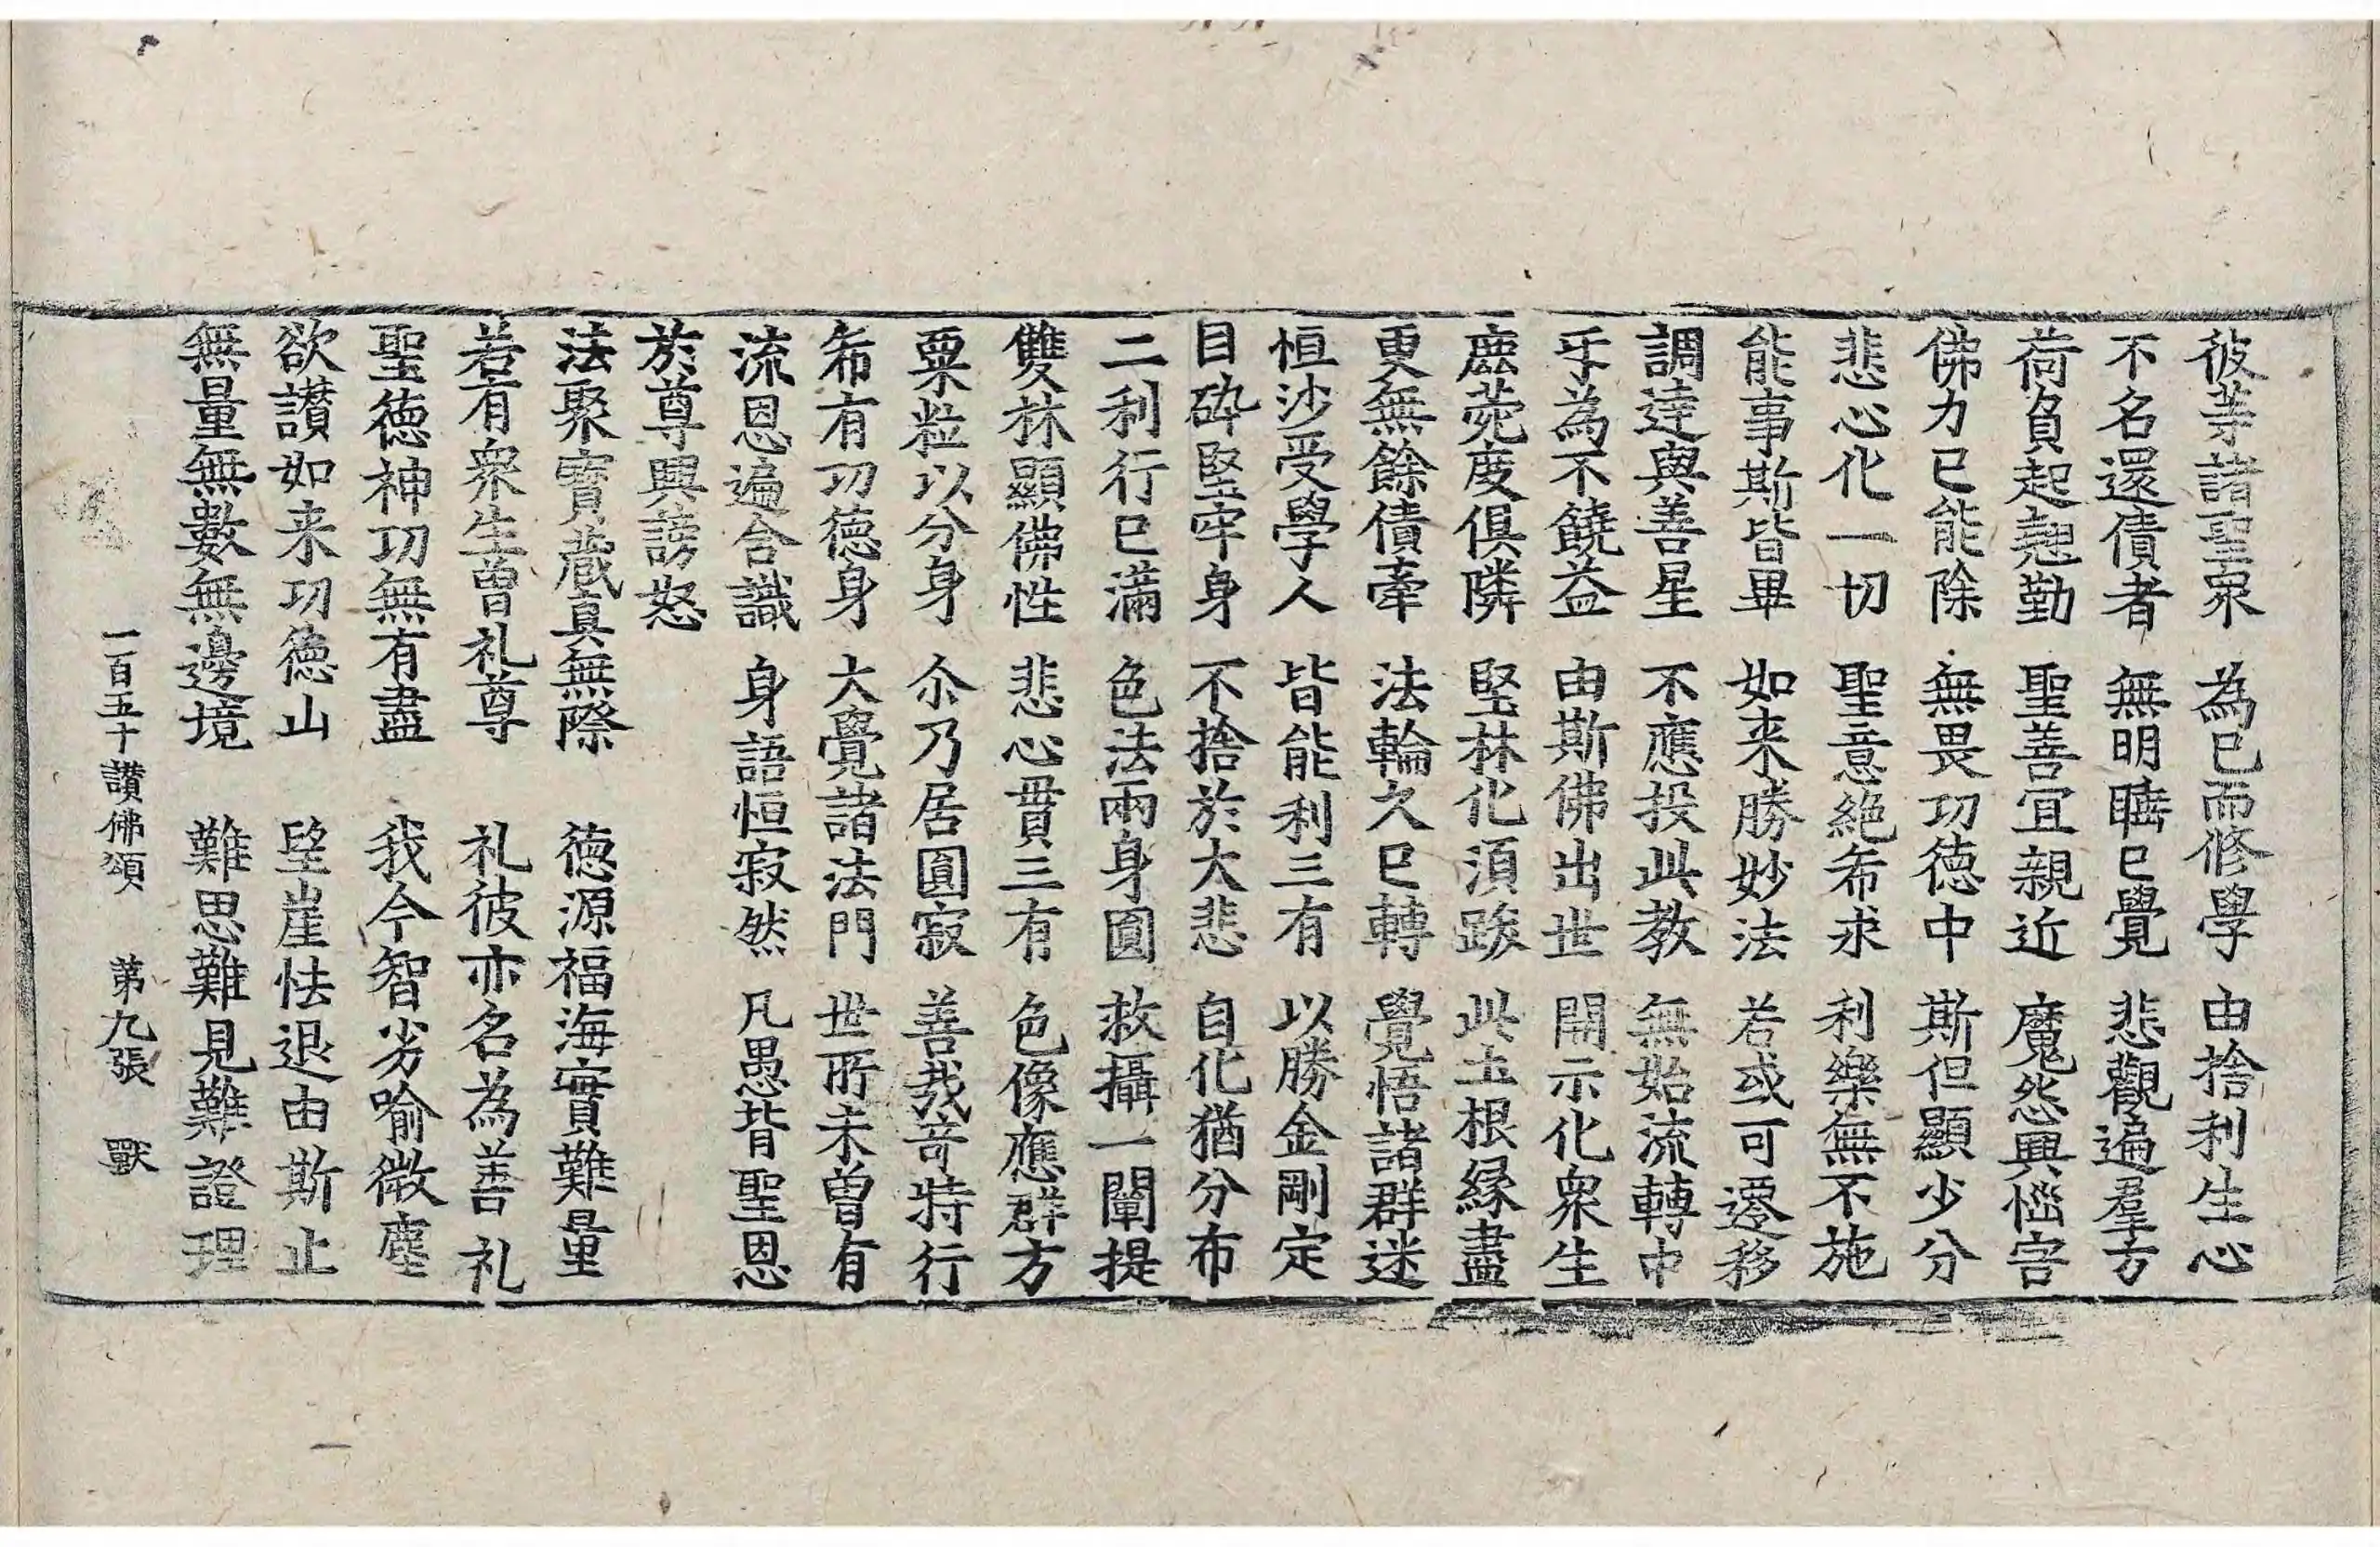 彼等諸聖衆 為已而修學 由捨利生心
不名還債者 無明睡已覺 悲觀遍羣方
荷負起翹勤 聖善宜親近 魔怨興惱害
佛力已能除 無畏功德中 斯但顯少分
悲心化一切 聖意絶希求 利樂無不施
能事斯皆畢 如来勝妙法 若或可遷移
調達與善星 不應投此教 無始流轉中
乎為不饒益 由斯佛出世 開示化衆生
鹿菀度俱隣 堅林化須跋 此土根縁盡
更無餘債牽 法輪久已轉 覺悟諸群迷
恒沙受學人 皆能利三有 以勝金剛定
自碎堅牢身 不捨於大悲 自化猶分布
二利行已滿 色法兩身圓 救攝一闡提
雙林顯佛性 悲心貫三有 色像應群方
粟粒以分身 尒乃居圓寂 善哉奇特行
希有功德身 大覺諸法門 世所未曾有
流恩遍含識 身語恒寂然 凡愚背聖恩
於尊興謗怒
法聚寶蔵真無際 德源福海實難量
若有衆生曾礼尊 礼彼亦名為善礼
聖德神功無有盡 我今智劣喻微塵
欲讃如来功德山 望崖怯退由斯止
無量無數無邊境 難思難見難證理
一百五十讃佛頌 第九張 獸